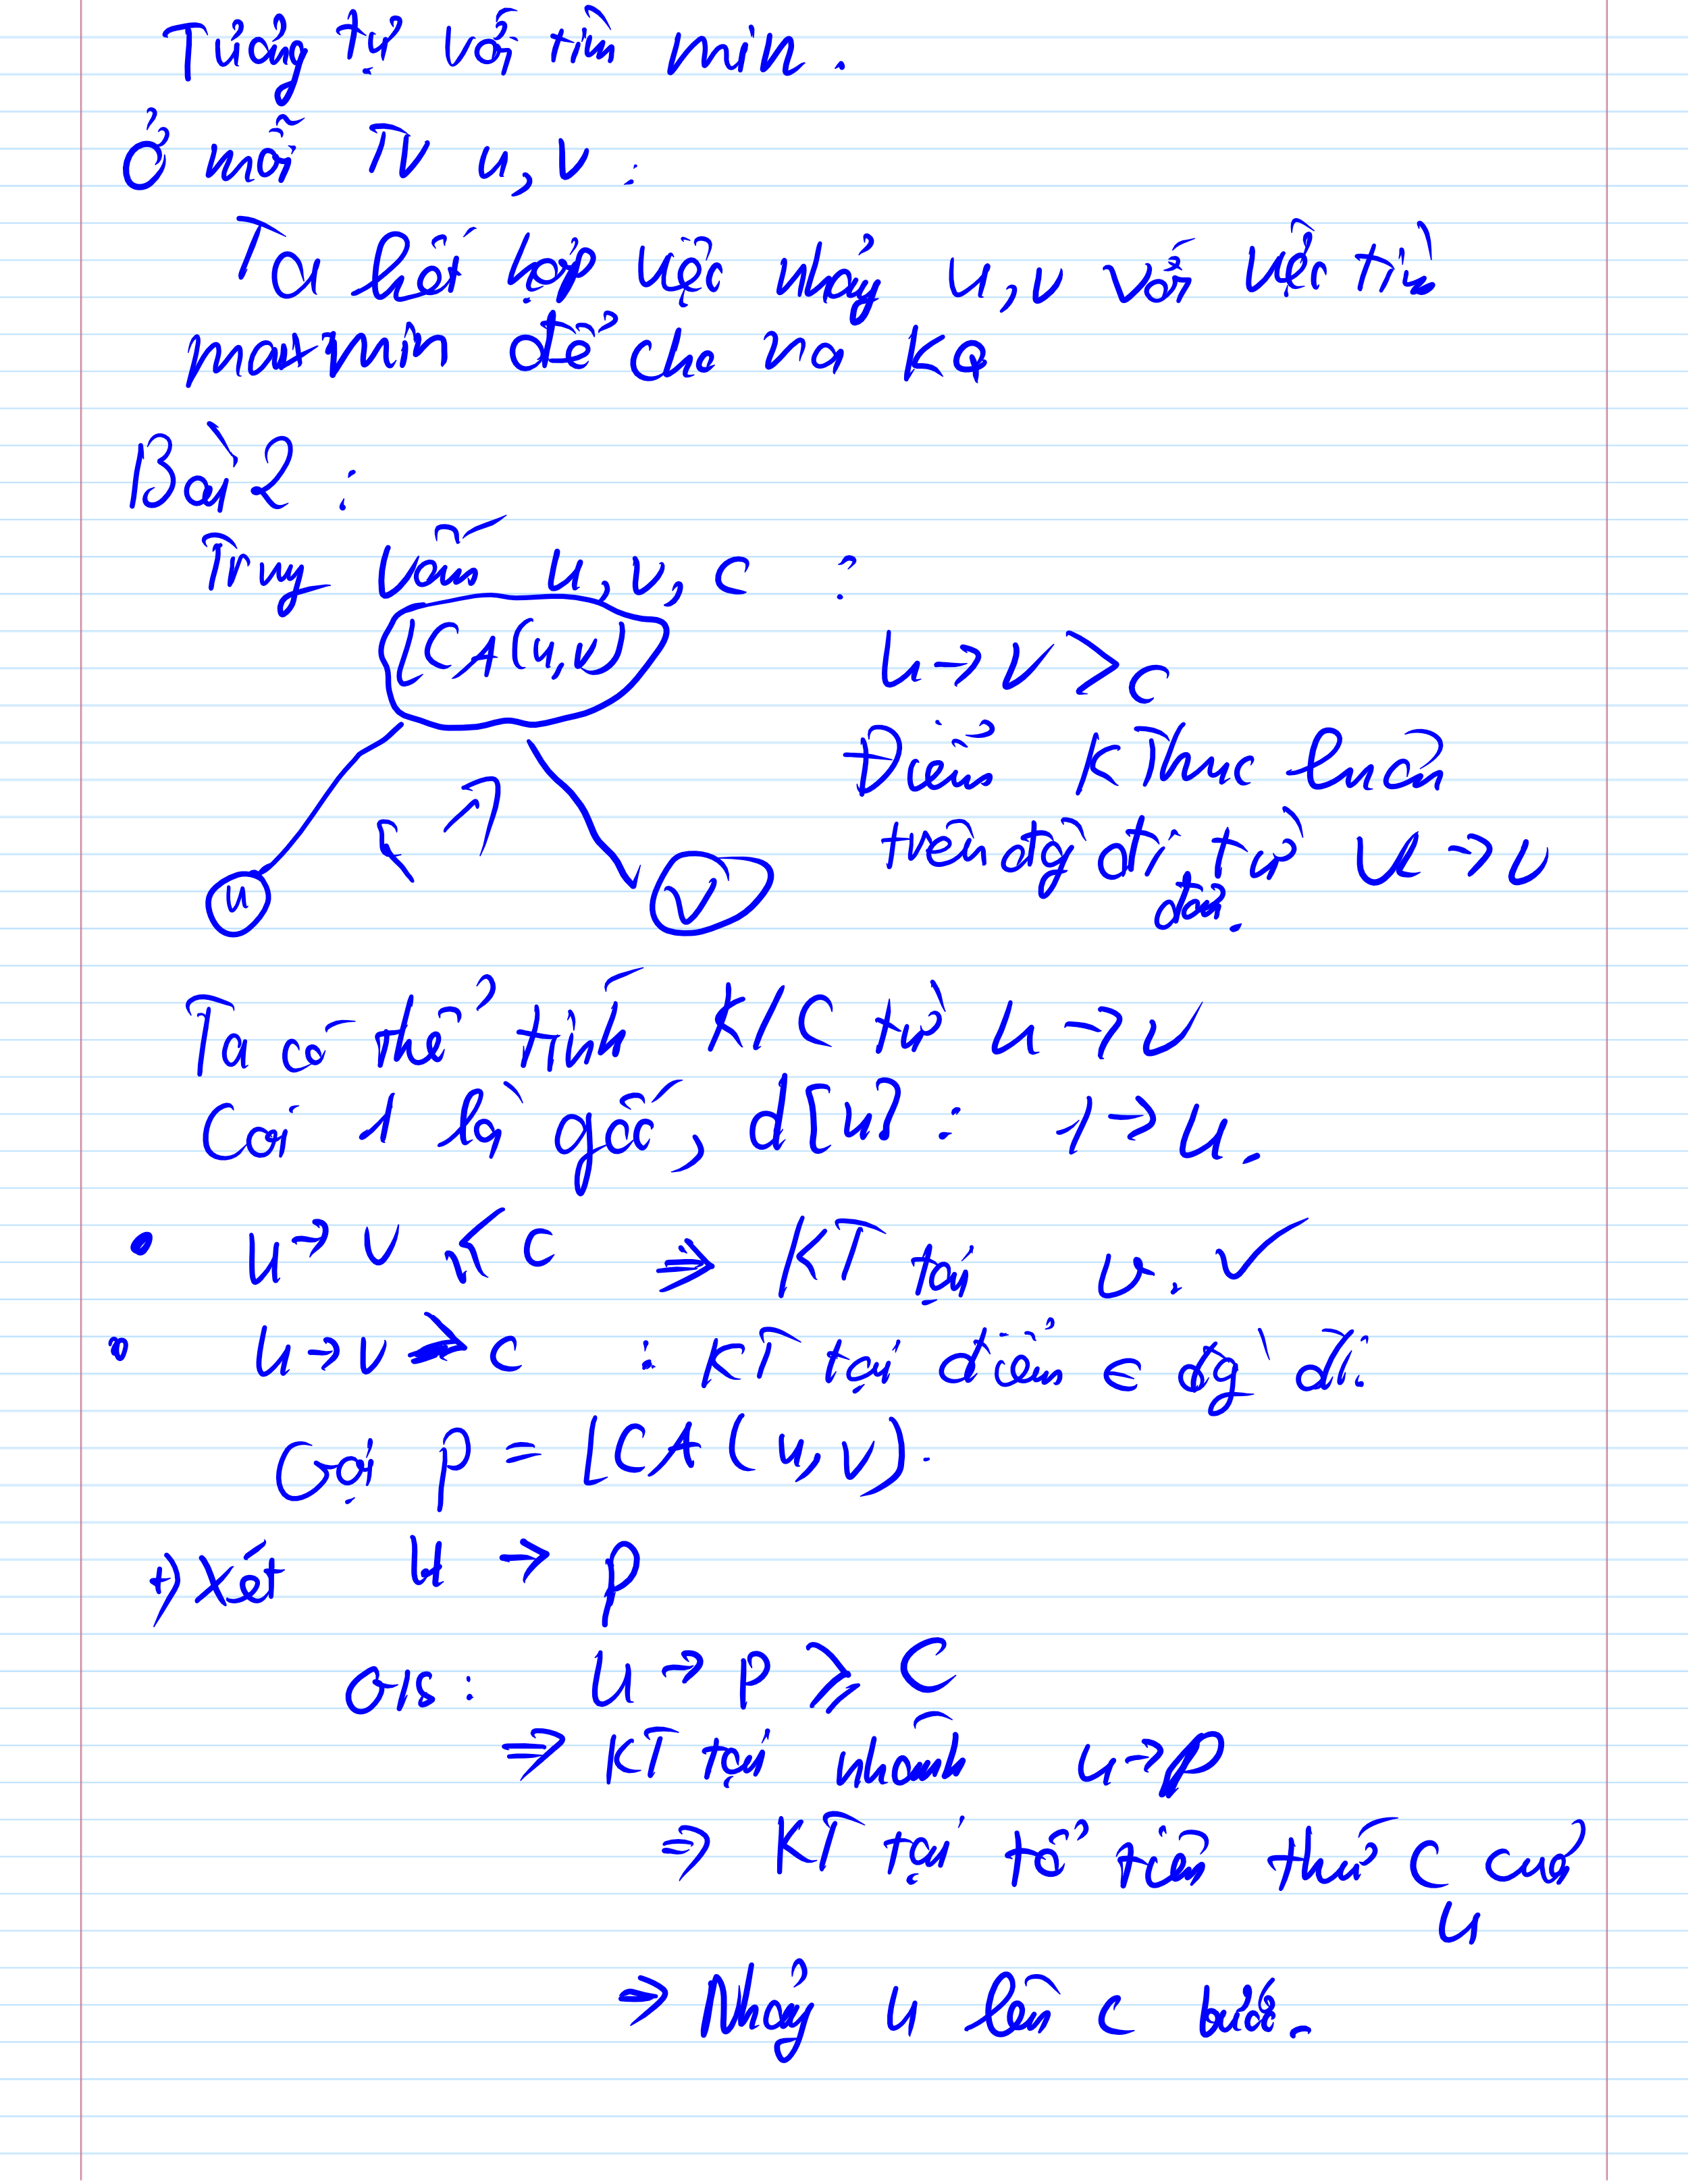 Tương tự với tìm min.
Ở mỗi TV u, v :
Ta kết hợp việc nhảy u, v với việc tìm
max min để cho ra KQ
Bài 2 :
Truy vấn u, v, c :
LCA(u,v)
u → v > c
Điểm kthuc luôn
trên đg đi từ u → v
đơn.
u
v
Ta có thể tính K/C từ u → v
Coi 1 là gốc, d[u] : 1 → u.
• u → v ≤ c ⇒ KT tại v. ✓
• u → v > c : KT tại điểm ∈ đg đi.
Gọi p = LCA(u, v).
+) Xét u → p
o/s : u → p ≥ C
⇒ KT tại nhánh u → p
⇒ KT tại tổ tiên thứ C của
u
⇒ Nhảy u lên c bước.